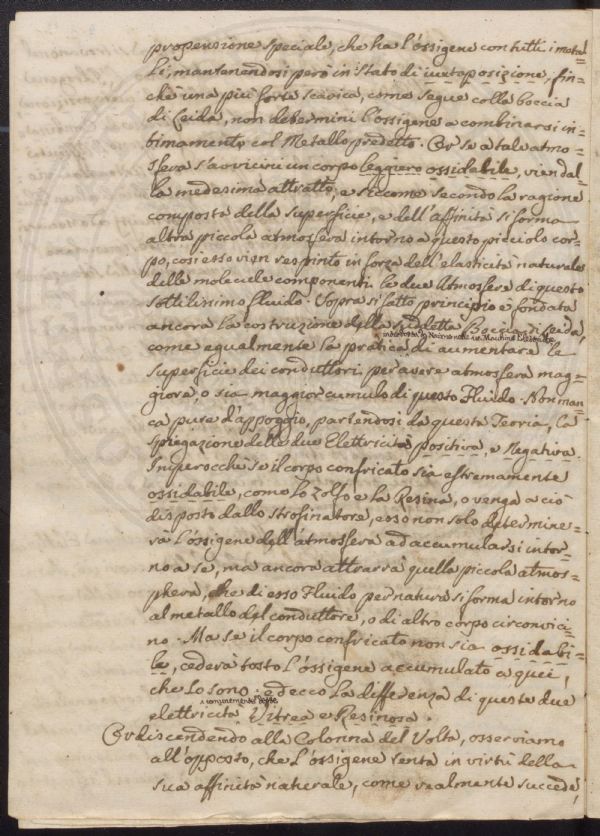 propensione speciale, che ha l'ossigene con tutti i metal=
li; mantenendosi però in stato di iuxtaposizione, fin=
chè una più forte scarica, come segue colla boccia
di Leida, non determini l'ossigene a combinarsi in=
timamente col Metallo predetto. Or se a tale atmo=
sfera s'avvicini un corpo leggiero ossidabile, vien dal=
la medesima attratto, e siccome secondo la ragione
composta della superficie, e dell'affinità si forma
altra piccola atmosfera intorno a questo picciolo cor=
po, così esso vien respinto in forza dell'elasticità naturale
delle molecule componenti le due Atmosfere di questo
sottilissimo fluido. Sopra sì fatto principio è fondata
ancora la costruzione della sudetta Boccia di Leida,
come egualmente la pratica di aumentare le
superficie dei conduttori per avere atmosfera mag=
giore, o sia maggior cumulo di questo Fluido. Non man=
ca pure d'appoggio, partendosi da questa Teoria, la
spiegazione delle due Elettricità positiva, e Negativa.
Imperocchè se il corpo confricato sia estremamente
ossidabile, como lo zolfo e la Resina, o venga a ciò
disposto dallo strofinatore, esso non solo determine=
rà l'ossigene dell'atmosfera ad accumularsi intor=
no a se, ma ancora attrarrà quella piccola atmos=
phera, che di esso Fluido per natura si forma intorno
al metallo del conduttore, o di altro corpo circonvici=
no. Ma se il corpo confricato non sia ossidabi=
le, cederà tosto l'ossigene accumulato a quei,
che lo sono: ed ecco la differenza di queste due
comunemente dette
elettricità Vitrea e Resinosa.
Or discendendo alla Colonna del Volta, osserviamo
all'opposto, che l'ossigene tenta in virtù della
sua affinità naturale, come realmente succede,